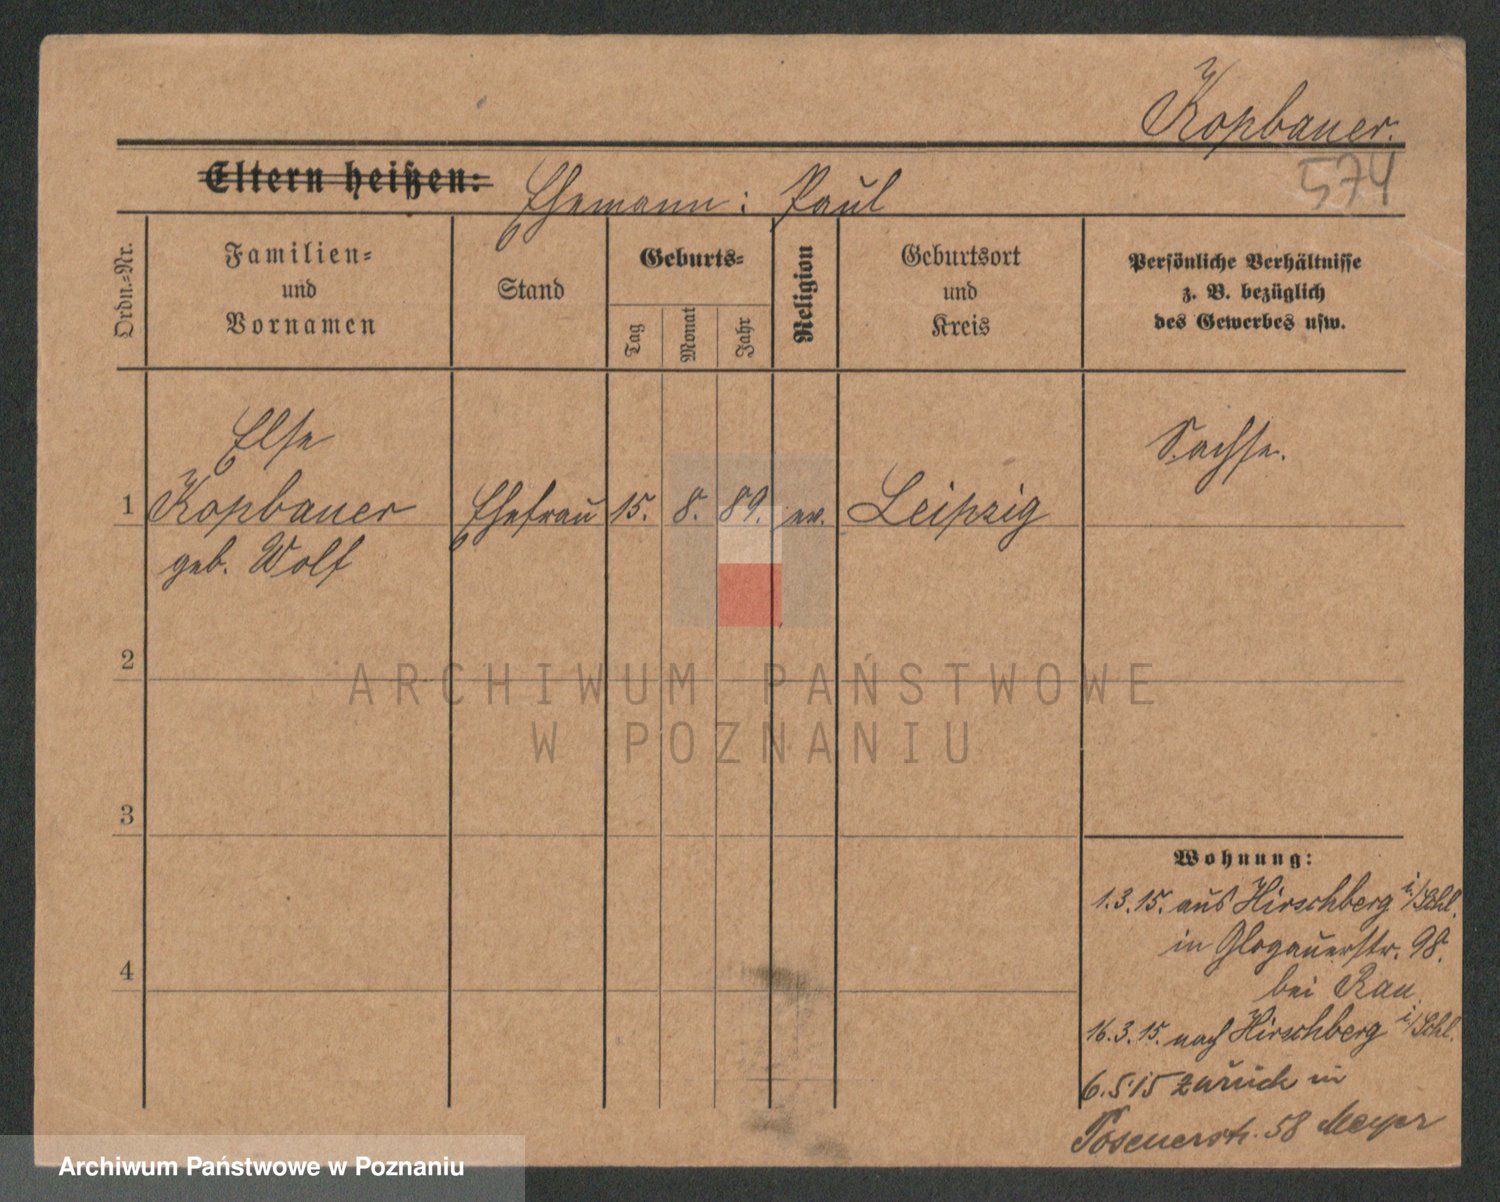 Kopbauer.
574
Eltern heißen: Ehemann: Paul
Ordn.-Nr.
Familien-
und
Vornamen
Stand
Geburts-
Tag
Monat
Jahr
Religion
Geburtsort
und
Kreis
Persönliche Verhältnisse
z. B. bezüglich
des Gewerbes usw.
Else
Sachse.
1 Kopbauer Ehefrau 15. 8. 89. ev. Leipzig
geb. Wolf
2
ARCHIWUM PAŃSTWOWE
W POZNANIU
3
Wohnung:
1.3.15. aus Hirschberg i/Schl.
in Glogauerstr. 98.
4
bei Rau
16.3.15. nach Hirschberg i/Schl.
6.5.15 zurück in
Posenerstr. 58 Meyer
Archiwum Państwowe w Poznaniu